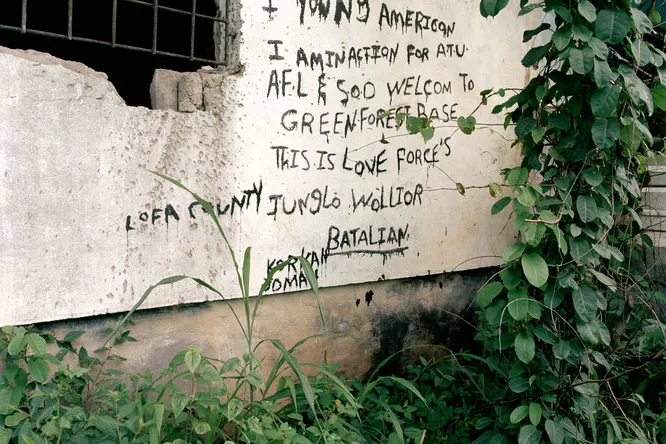 I YOUNG AMERICAN
I AM INACTTION FOR A.T.U.
AFL & SOD WELCOM TO
GREEN FOREST BASE
THIS IS LOVE FORCE'S
LOFA COUNTY
JUNGLO WOLLIOR
BATALIAN.